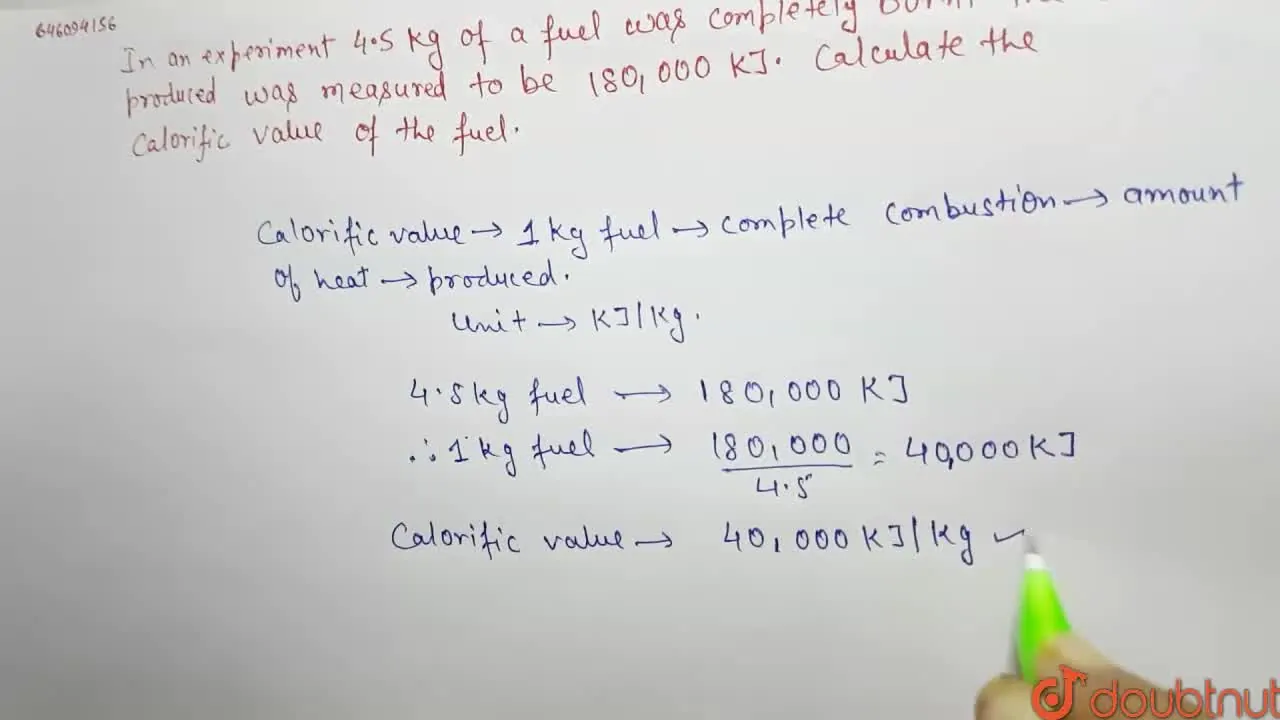 646094156
In an experiment 4.5 kg of a fuel was completely
produced was measured to be 180,000 KJ. Calculate the
Calorific value of the fuel.
Calorific value → 1 kg fuel → complete combustion → amount
of heat → produced.
Unit → KJ/kg.
4.5kg fuel → 180,000 KJ
∴ 1 kg fuel → 180,000 / 4.5 = 40,000 KJ
Calorific value → 40,000 KJ/kg ✓
doubtnut